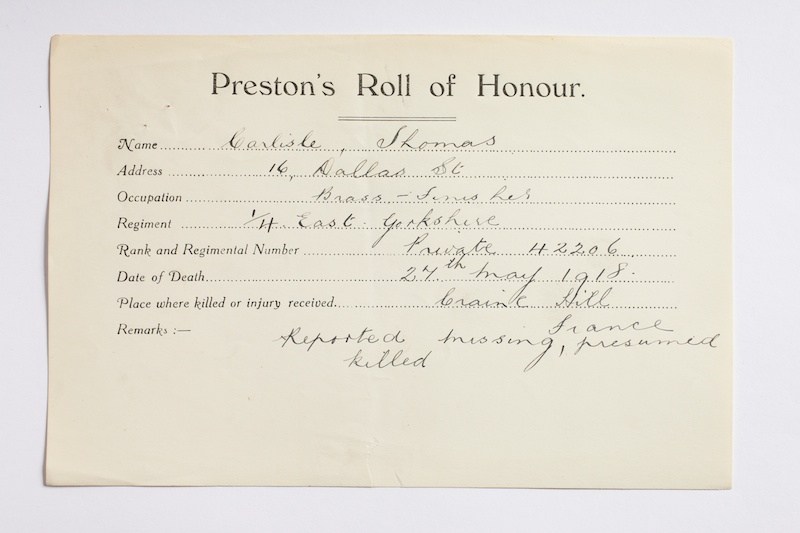 Preston's Roll of Honour.
Name Carlisle, Thomas
Address 16, Dallas St
Occupation Brass-Finisher
Regiment 1/4 East Yorkshire
Rank and Regimental Number Private 42206
Date of Death 27th May 1918.
Place where killed or injury received. Hill
France
Remarks :— Reported missing, presumed
killed